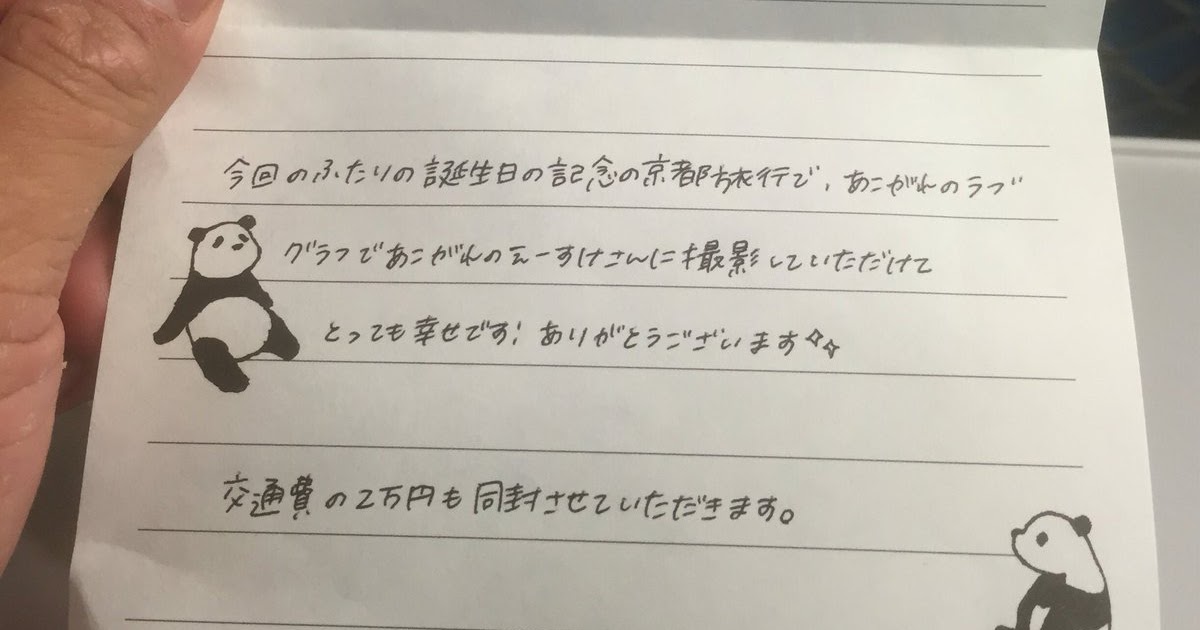 今回のふたりの誕生日の記念の京都旅行で、あこがれのラブ
グラフであこがれのえーすけさんに撮影していただけて
とっても幸せです! ありがとうございます✧✧
交通費の2万円も同封させていただきます。